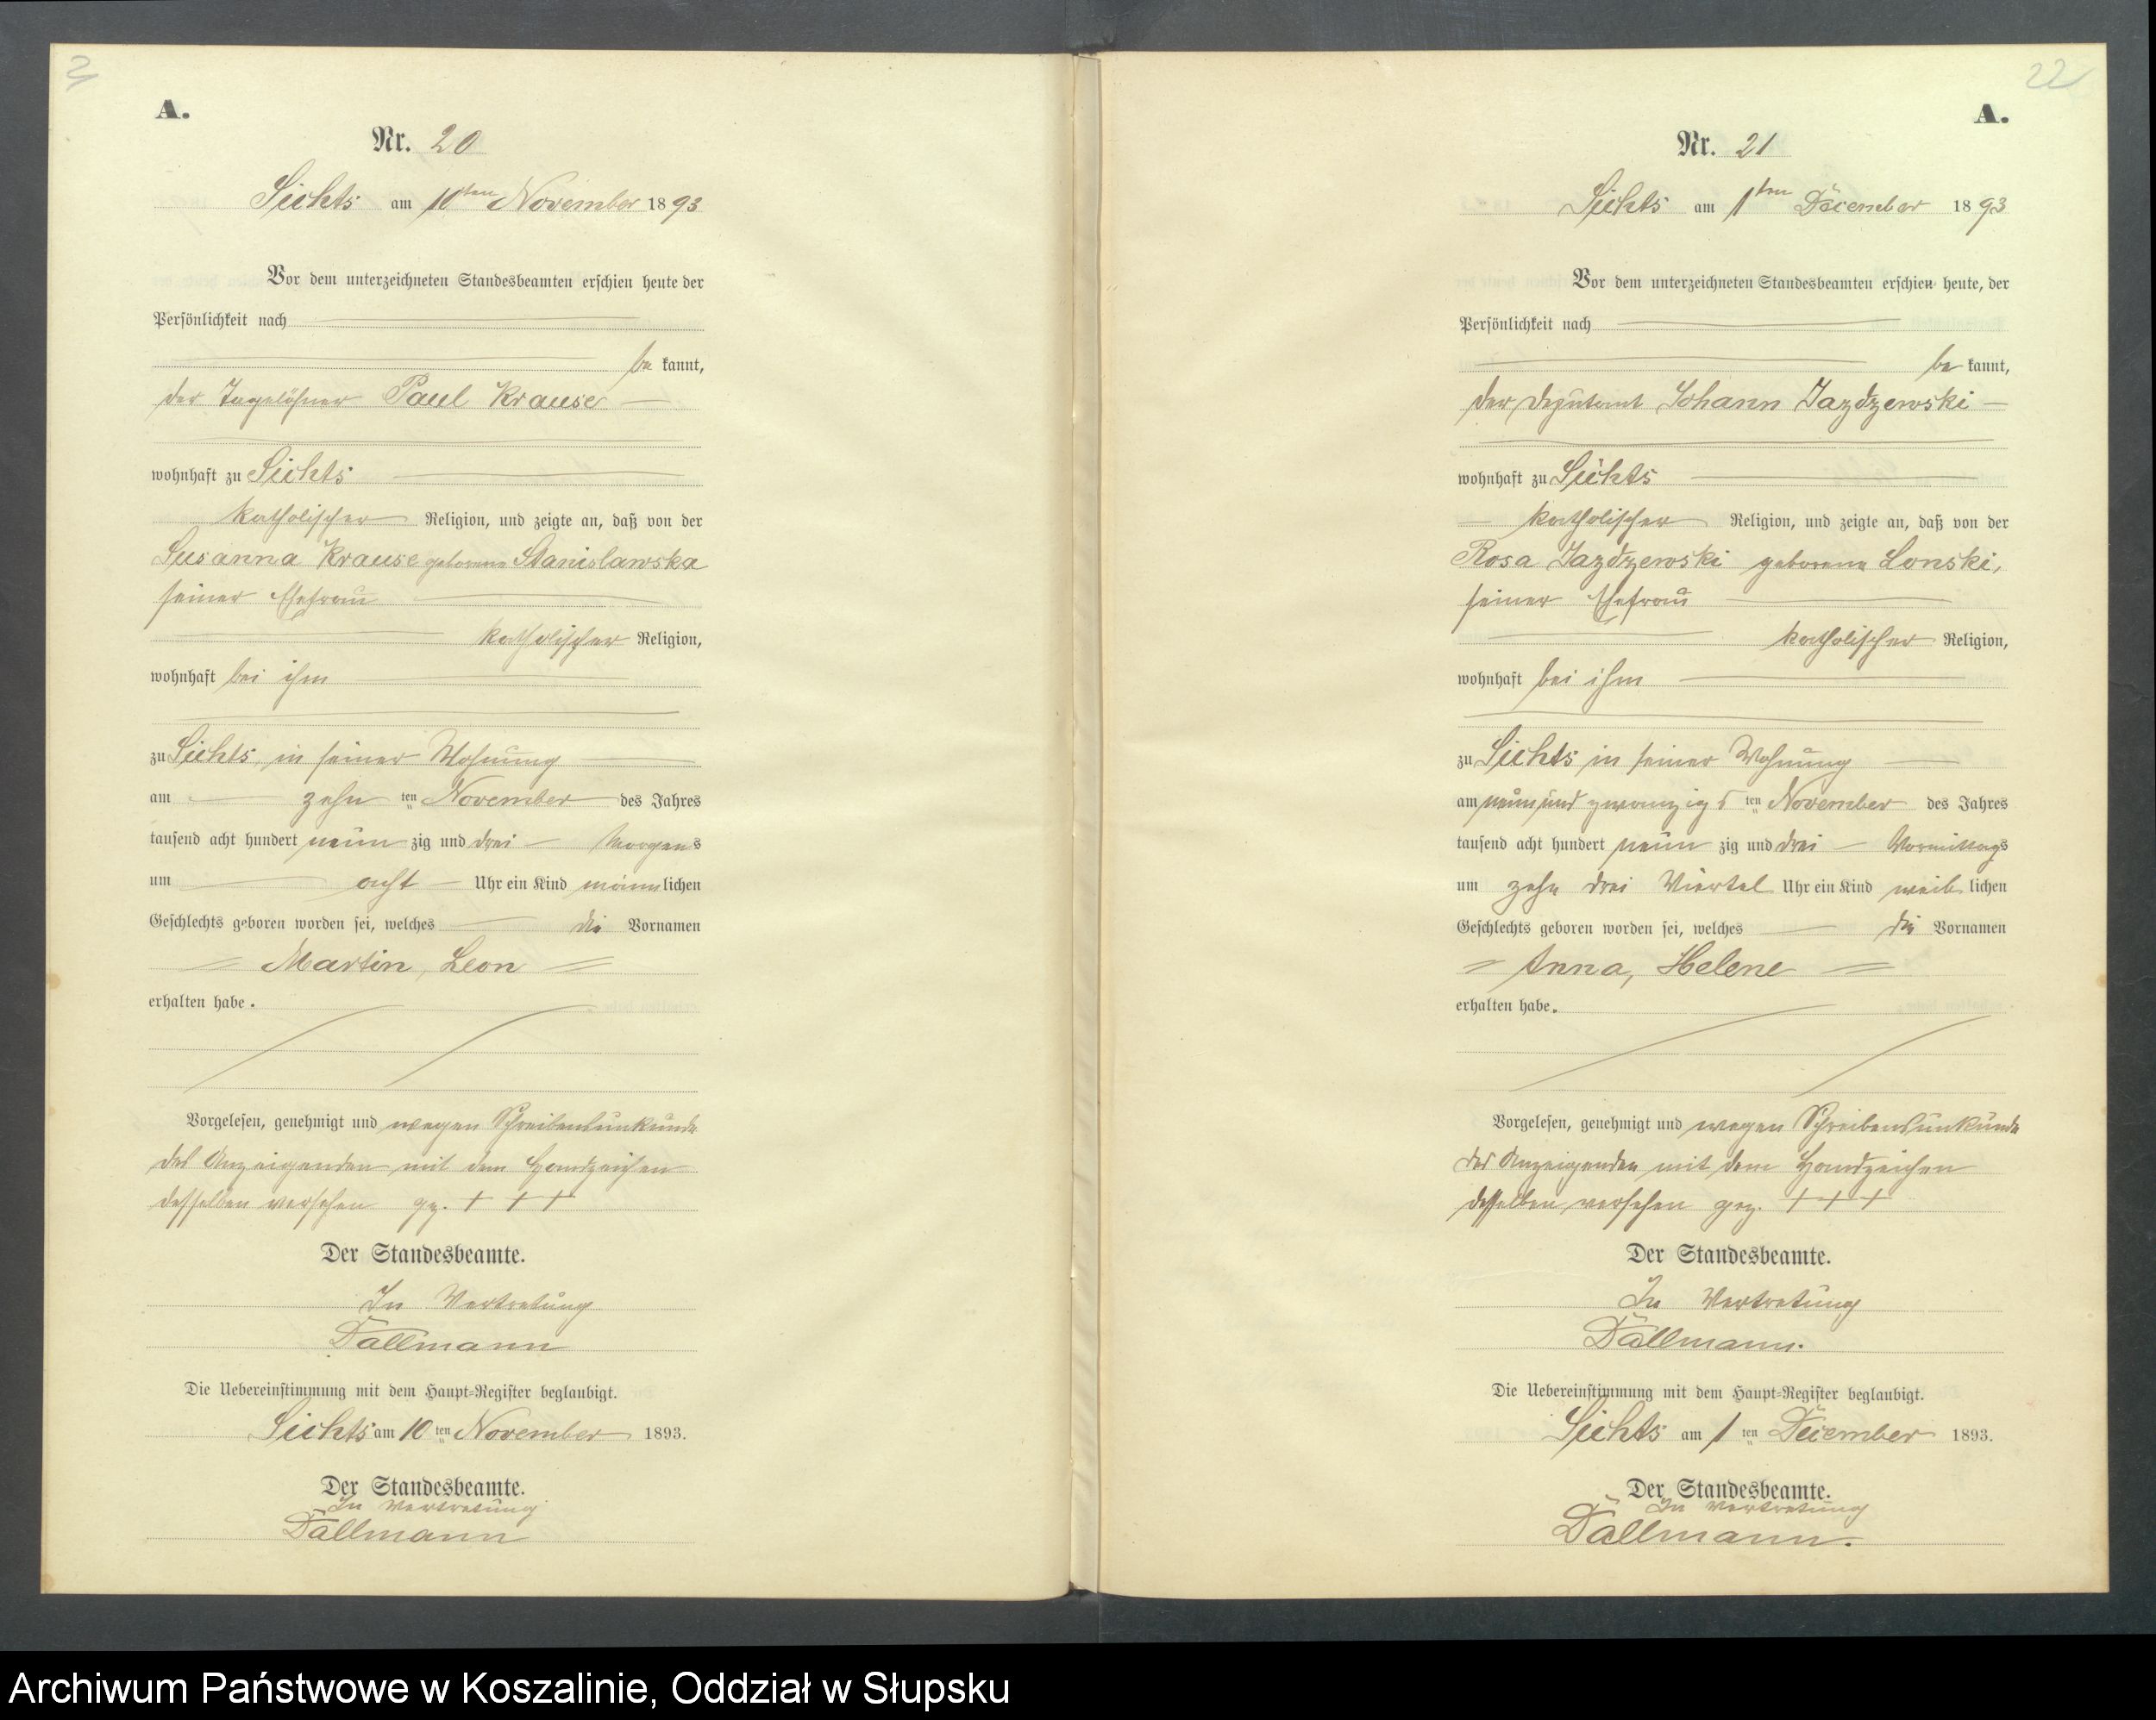 21
A.
Nr. 20
Sichts am 10ten November 1893
Vor dem unterzeichneten Standesbeamten erschien heute der
Persönlichkeit nach
be kannt,
der Tagelöhner Paul Krause
wohnhaft zu Sichts
katholischer Religion, und zeigte an, daß von der
Susanna Krause geborene Stanislawska
seiner Ehefrau
katholischer Religion,
wohnhaft bei ihm
zu Sichts in seiner Wohnung
am zehn ten November des Jahres
tausend acht hundert neun zig und drei Morgens
um acht Uhr ein Kind männlichen
Geschlechts geboren worden sei, welches die Vornamen
Martin, Leon
erhalten habe.
Vorgelesen, genehmigt und wegen Schreibensunkunde
des Anzeigenden mit dem Handzeichen
desselben versehen gz. + + +
Der Standesbeamte.
In Vertretung
Dallmann
Die Uebereinstimmung mit dem Haupt-Register beglaubigt.
Sichts am 10 ten November 1893.
Der Standesbeamte.
In Vertretung
Dallmann
22
A.
Nr. 21
Sichts am 1ten December 1893
Vor dem unterzeichneten Standesbeamten erschien heute, der
Persönlichkeit nach
be kannt,
der Deputant Johann Jazdzewski
wohnhaft zu Sichts
katholischer Religion, und zeigte an, daß von der
Rosa Jazdzewski geborene Lonski,
seiner Ehefrau
katholischer Religion,
wohnhaft bei ihm
zu Sichts in seiner Wohnung
am neunundzwanzigs ten November des Jahres
tausend acht hundert neun zig und drei Vormittags
um zehn drei Viertel Uhr ein Kind weib lichen
Geschlechts geboren worden sei, welches die Vornamen
Anna, Helene
erhalten habe.
Vorgelesen, genehmigt und wegen Schreibensunkunde
des Anzeigenden mit dem Handzeichen
desselben versehen gez. + + +
Der Standesbeamte.
In Vertretung
Dallmann.
Die Uebereinstimmung mit dem Haupt-Register beglaubigt.
Sichts am 1 ten December 1893.
Der Standesbeamte.
In Vertretung
Dallmann.
Archiwum Państwowe w Koszalinie, Oddział w Słupsku